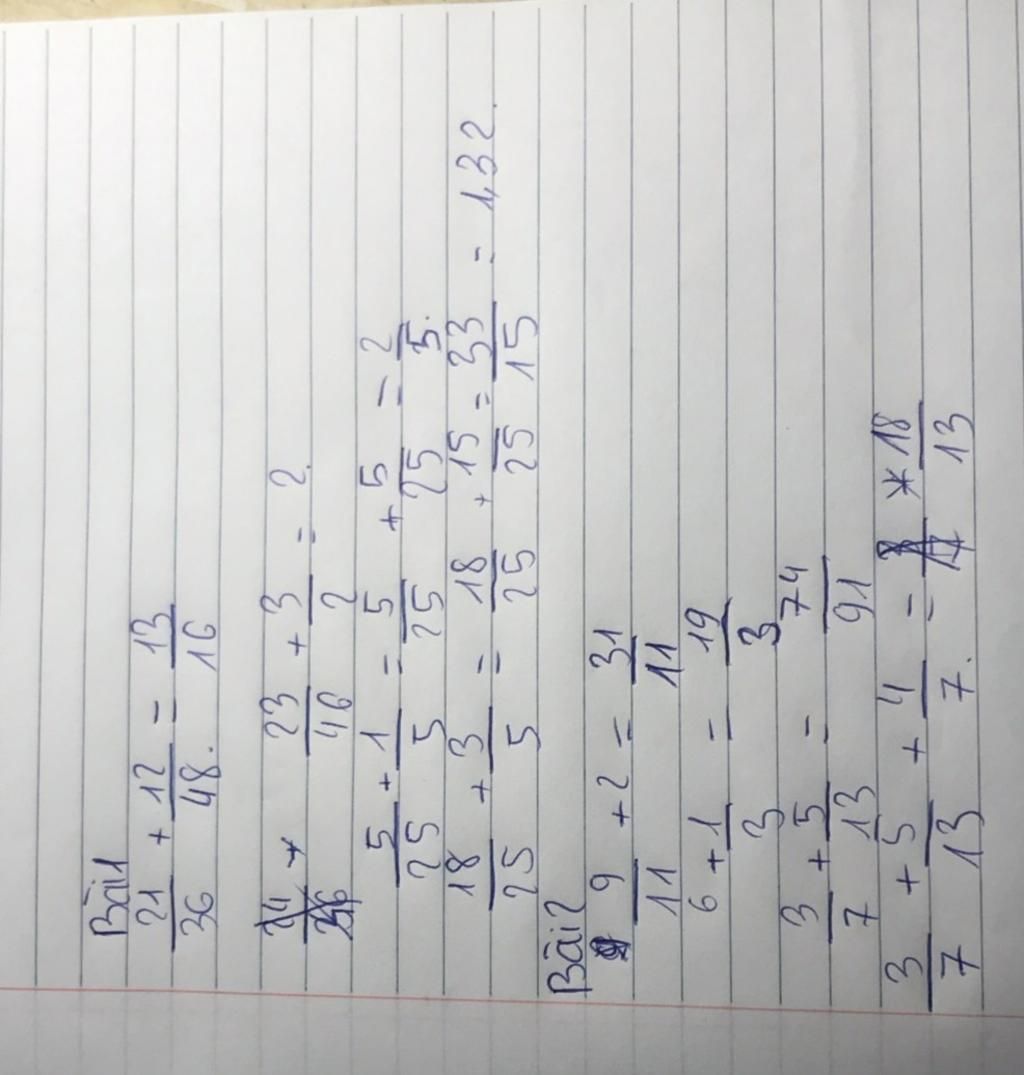 Bài 1
21/36 + 12/48. = 13/16
23/46 + 3/2 = 2.
5/25 + 1/5 = 5/25 + 5/25 = 2/5.
18/25 + 3/5 = 18/25 + 15/25 = 33/15 = 1,32.
Bài 2
9/11 + 2 = 31/11
6 + 1/3 = 19/3
3/7 + 5/13 = 74/91
3/7 + 5/13 + 4/7. = * 18/13